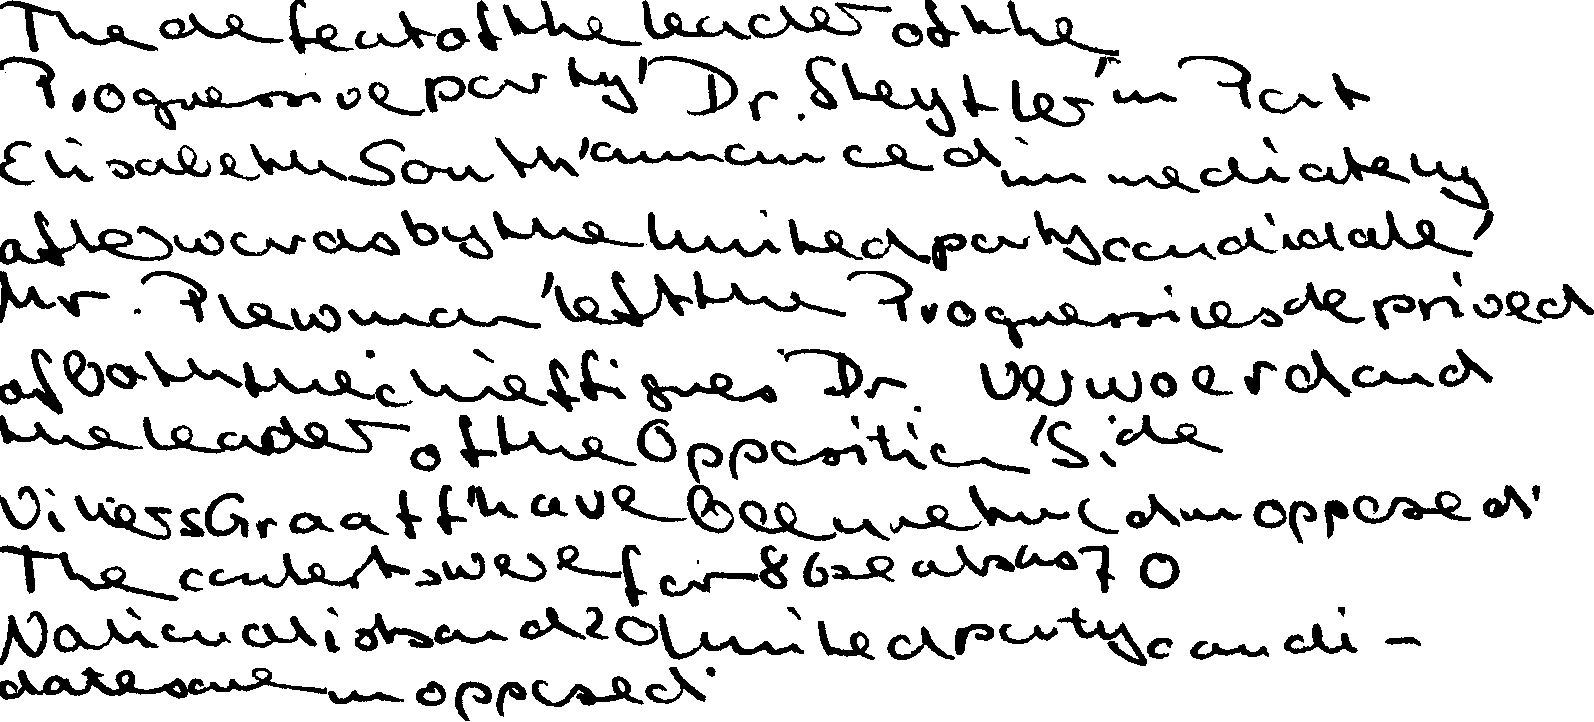 The defeat of the leader of the
Progressive party, Dr. Steytler in Port
Elisabeth South, announced immediately
afterwards by the United party candidate,
Mr. Plewman, left the Progressives deprived
of both the chief figures Dr. Verwoerd and
the leader of the Opposition, Side
Villiers Graaff, have been returned unopposed.
The contests were for 86 seats as 70
Nationalists and 20 United party candi-
dates are unopposed.